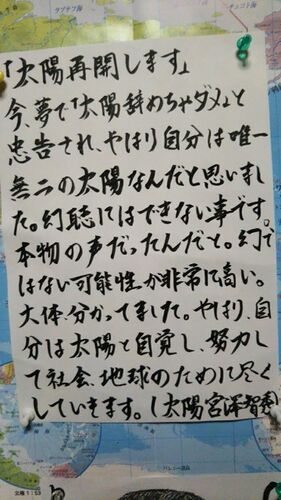 「太陽再開します」
今、夢で「太陽辞めちゃダメ」と
忠告され、やはり自分は唯一
無二の太陽なんだと思いまし
た。幻聴にはできない事です。
本物の声だったんだと。幻で
はない可能性が非常に高い。
大体、分かってました。やはり、自
分は太陽と自覚し、努力し
て社会、地球のために尽く
していきます。(太陽宮澤智秀)